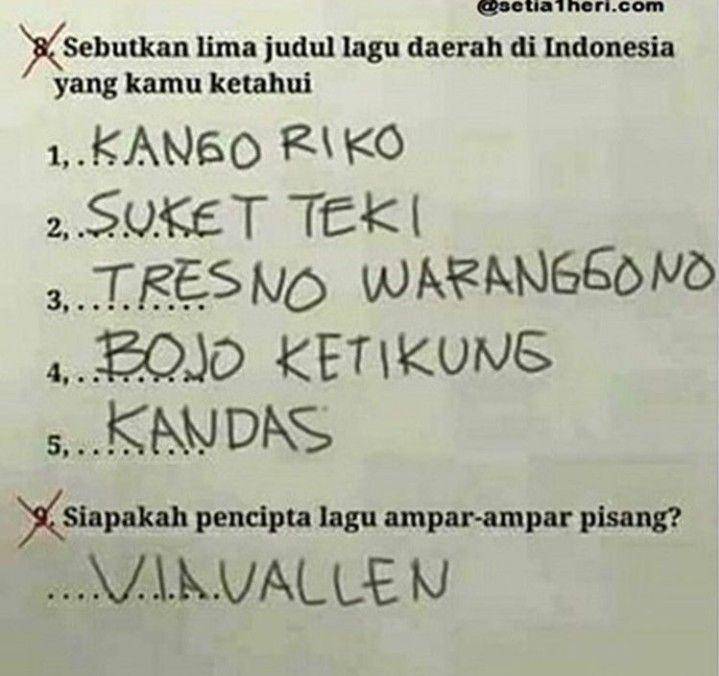 @setia1heri.com
8. Sebutkan lima judul lagu daerah di Indonesia
yang kamu ketahui
1, . KANGO RIKO
2, ..SUKET TEKI
3, ..TRESNO WARANGGONO
4, ..BOJO KETIKUNG
5, ..KANDAS
9. Siapakah pencipta lagu ampar-ampar pisang?
....VIA VALLEN